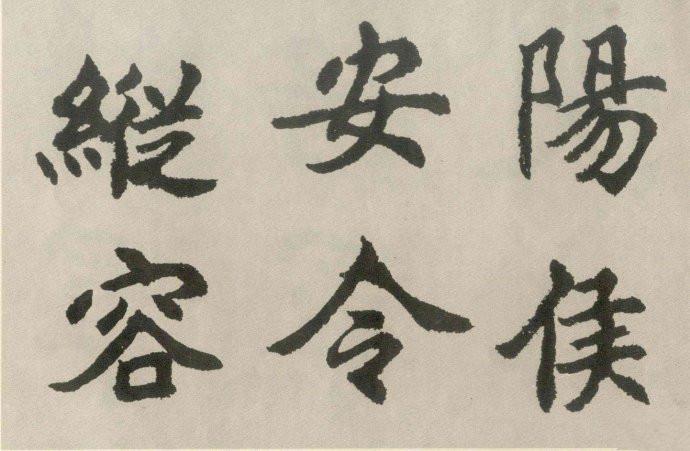 陽侯
安令
縱容